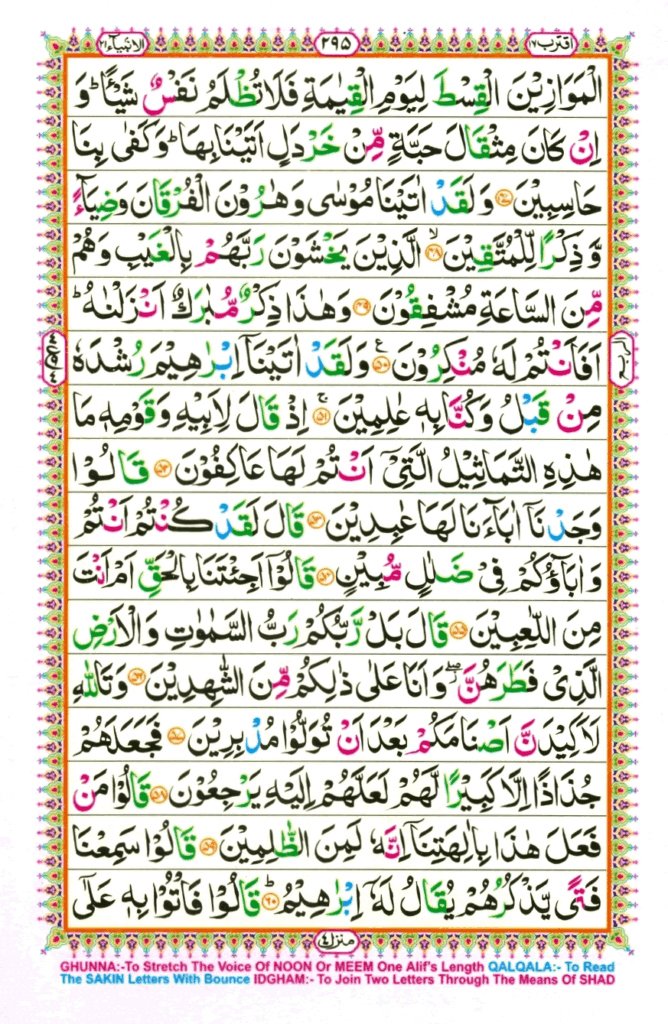 اقترب ١٧ ٢٩٥ الانبياء ٢١
الْمَوَازِيْنَ الْقِسْطَ لِيَوْمِ الْقِيٰمَةِ فَلَا تُظْلَمُ نَفْسٌ شَيْـًٔا ؕ وَ
اِنْ كَانَ مِثْقَالَ حَبَّةٍ مِّنْ خَرْدَلٍ اَتَيْنَا بِهَا ؕ وَكَفٰى بِنَا
حَاسِبِيْنَ ﴿۴۷﴾ وَلَقَدْ اٰتَيْنَا مُوْسٰى وَهٰرُوْنَ الْفُرْقَانَ وَضِيَآءً
وَّذِكْرًا لِّلْمُتَّقِيْنَ ﴿۴۸﴾ۙ الَّذِيْنَ يَخْشَوْنَ رَبَّهُمْ بِالْغَيْبِ وَهُمْ
مِّنَ السَّاعَةِ مُشْفِقُوْنَ ﴿۴۹﴾ وَهٰذَا ذِكْرٌ مُّبٰرَكٌ اَنْزَلْنٰهُ ؕ
اَفَاَنْتُمْ لَهٗ مُنْكِرُوْنَ ﴿۵۰﴾ۧ وَلَقَدْ اٰتَيْنَاۤ اِبْرٰهِيْمَ رُشْدَهٗ
مِنْ قَبْلُ وَكُنَّا بِهٖ عٰلِمِيْنَ ﴿۵۱﴾ۚ اِذْ قَالَ لِاَبِيْهِ وَقَوْمِهٖ مَا
هٰذِهِ التَّمَاثِيْلُ الَّتِيْۤ اَنْتُمْ لَهَا عَاكِفُوْنَ ﴿۵۲﴾ قَالُوْا
وَجَدْنَاۤ اٰبَآءَنَا لَهَا عٰبِدِيْنَ ﴿۵۳﴾ قَالَ لَقَدْ كُنْتُمْ اَنْتُمْ
وَاٰبَآؤُكُمْ فِيْ ضَلٰلٍ مُّبِيْنٍ ﴿۵۴﴾ قَالُوْۤا اَجِئْتَنَا بِالْحَقِّ اَمْ اَنْتَ
مِنَ اللّٰعِبِيْنَ ﴿۵۵﴾ قَالَ بَلْ رَّبُّكُمْ رَبُّ السَّمٰوٰتِ وَالْاَرْضِ
الَّذِيْ فَطَرَهُنَّ ۖ وَاَنَا عَلٰى ذٰلِكُمْ مِّنَ الشّٰهِدِيْنَ ﴿۵۶﴾ وَتَاللّٰهِ
لَاَكِيْدَنَّ اَصْنَامَكُمْ بَعْدَ اَنْ تُوَلُّوْا مُدْبِرِيْنَ ﴿۵۷﴾ فَجَعَلَهُمْ
جُذَاذًا اِلَّا كَبِيْرًا لَّهُمْ لَعَلَّهُمْ اِلَيْهِ يَرْجِعُوْنَ ﴿۵۸﴾ قَالُوْا مَنْ
فَعَلَ هٰذَا بِاٰلِهَتِنَاۤ اِنَّهٗ لَمِنَ الظّٰلِمِيْنَ ﴿۵۹﴾ قَالُوْا سَمِعْنَا
فَتًى يَّذْكُرُهُمْ يُقَالُ لَهٗۤ اِبْرٰهِيْمُ ﴿۶۰﴾ؕ قَالُوْا فَاْتُوْا بِهٖ عَلٰۤى
منزل ۴
GHUNNA:-To Stretch The Voice Of NOON Or MEEM One Alif's Length QALQALA:- To Read
The SAKIN Letters With Bounce IDGHAM:- To Join Two Letters Through The Means Of SHAD